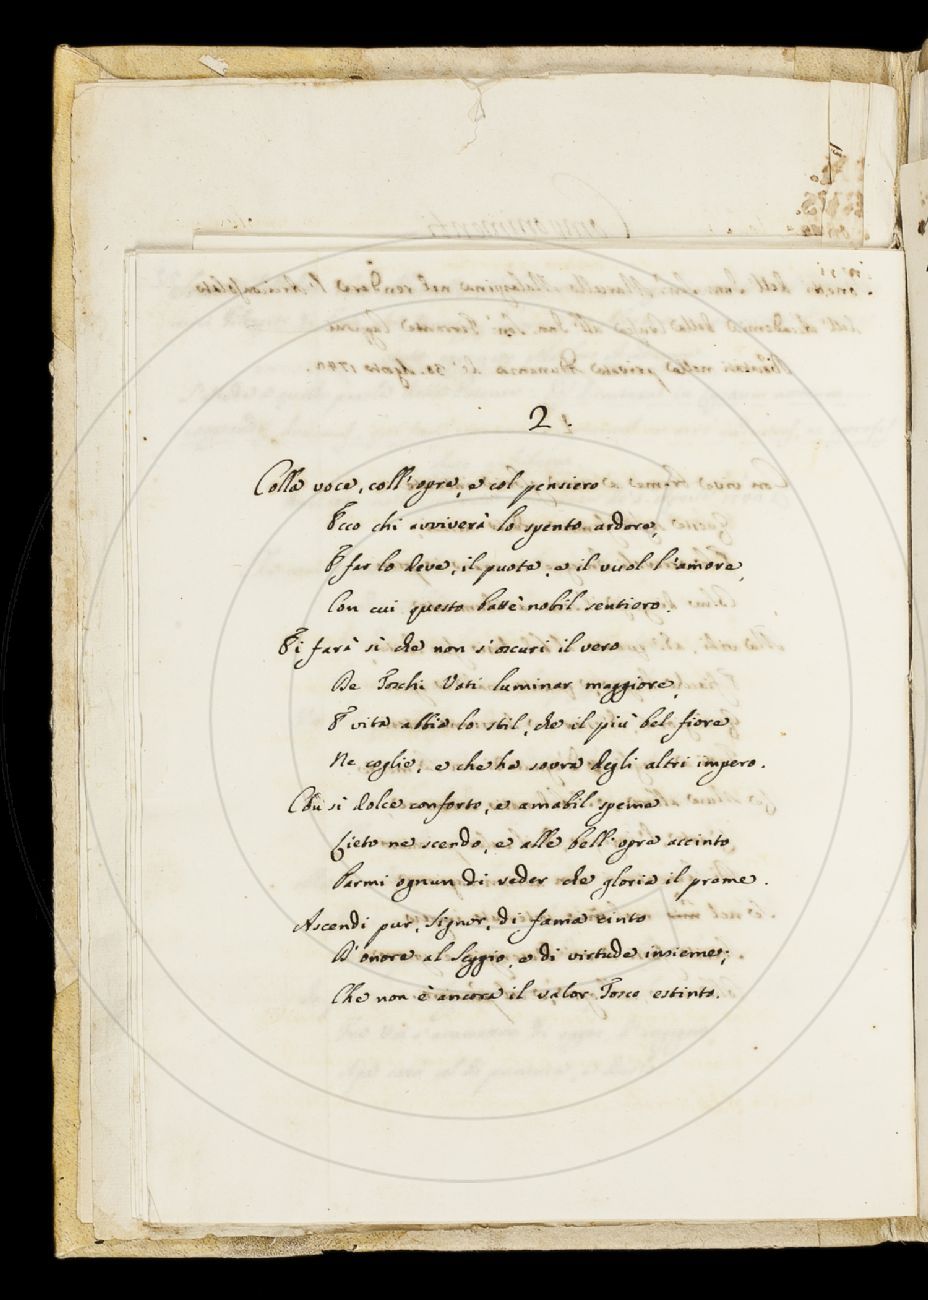 2.
Colla voce, coll'opre, e col pensiero
Ecco chi avviverà lo spento ardore,
E far lo deve, il puote, e il vuol l'amore,
Con cui questo battè nobil sentiero.
Ei farà sì che non s'oscuri il vero
De Toschi Vati luminar maggiore,
E vita abbia lo stil, che il più bel fiore
Ne coglie, e che ha sovra degli altri impero.
Con sì dolce conforto, e amabil speme
Lieto ne scendo, e alle bell'opre accinto
Parmi ognun di veder che gloria il preme.
Ascendi pur, Signor, di fama cinto
D'onore al Seggio, e di virtude insieme;
Che non è ancora il valor Tosco estinto.